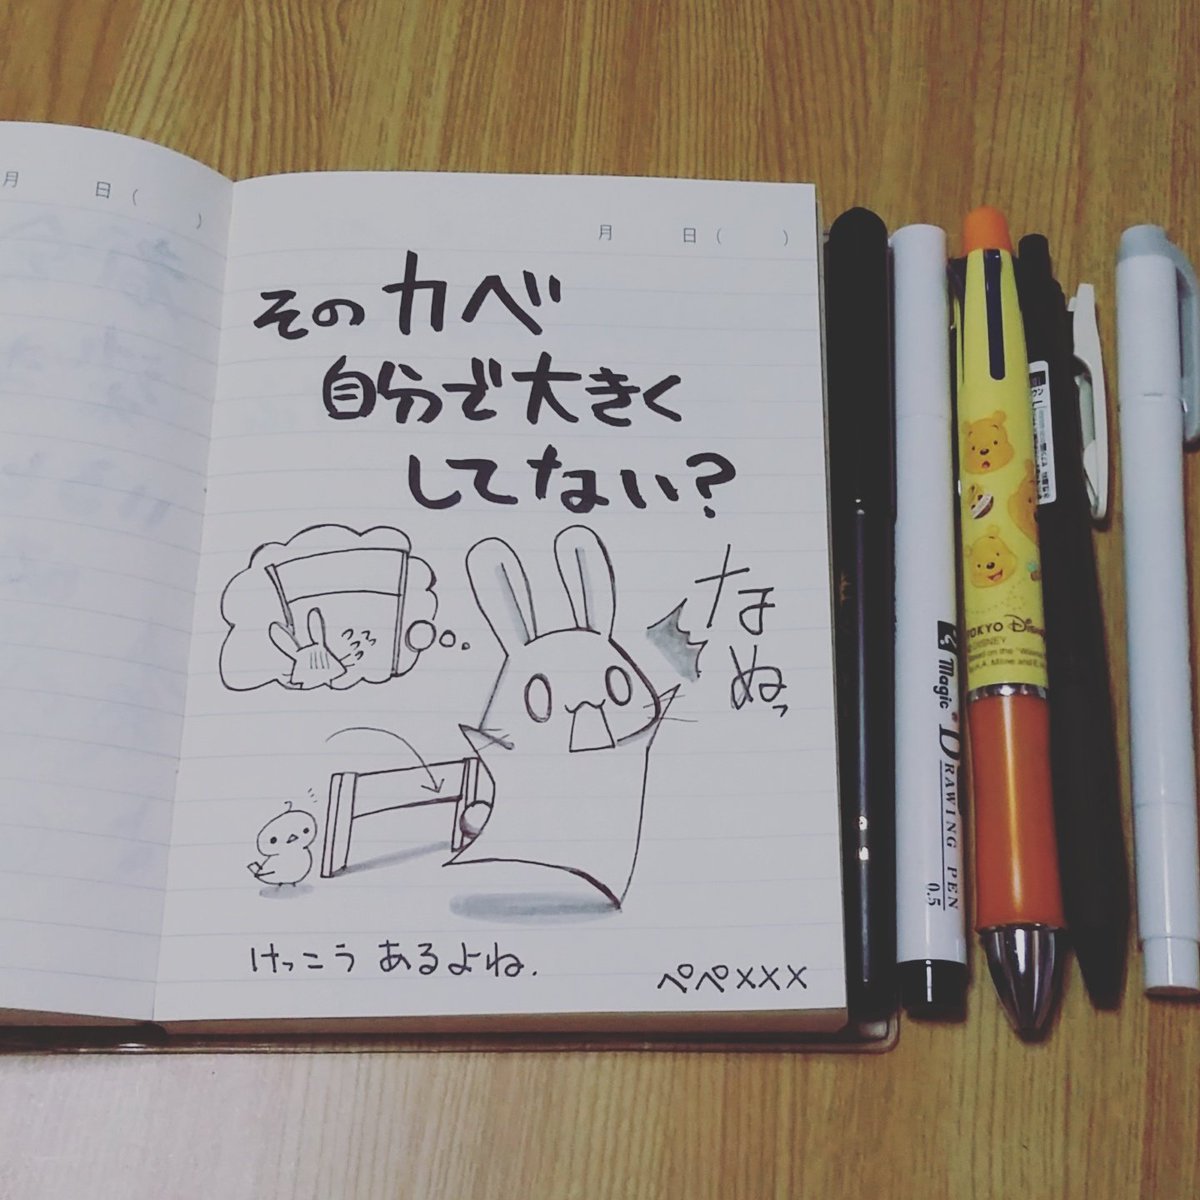 月 日( )
月 日( )
そのカベ
自分で大きく
してない?
なぬっ
けっこう あるよね.
ぺぺ×××
Magic
DRAWING PEN
0.5
TOKYO Disney